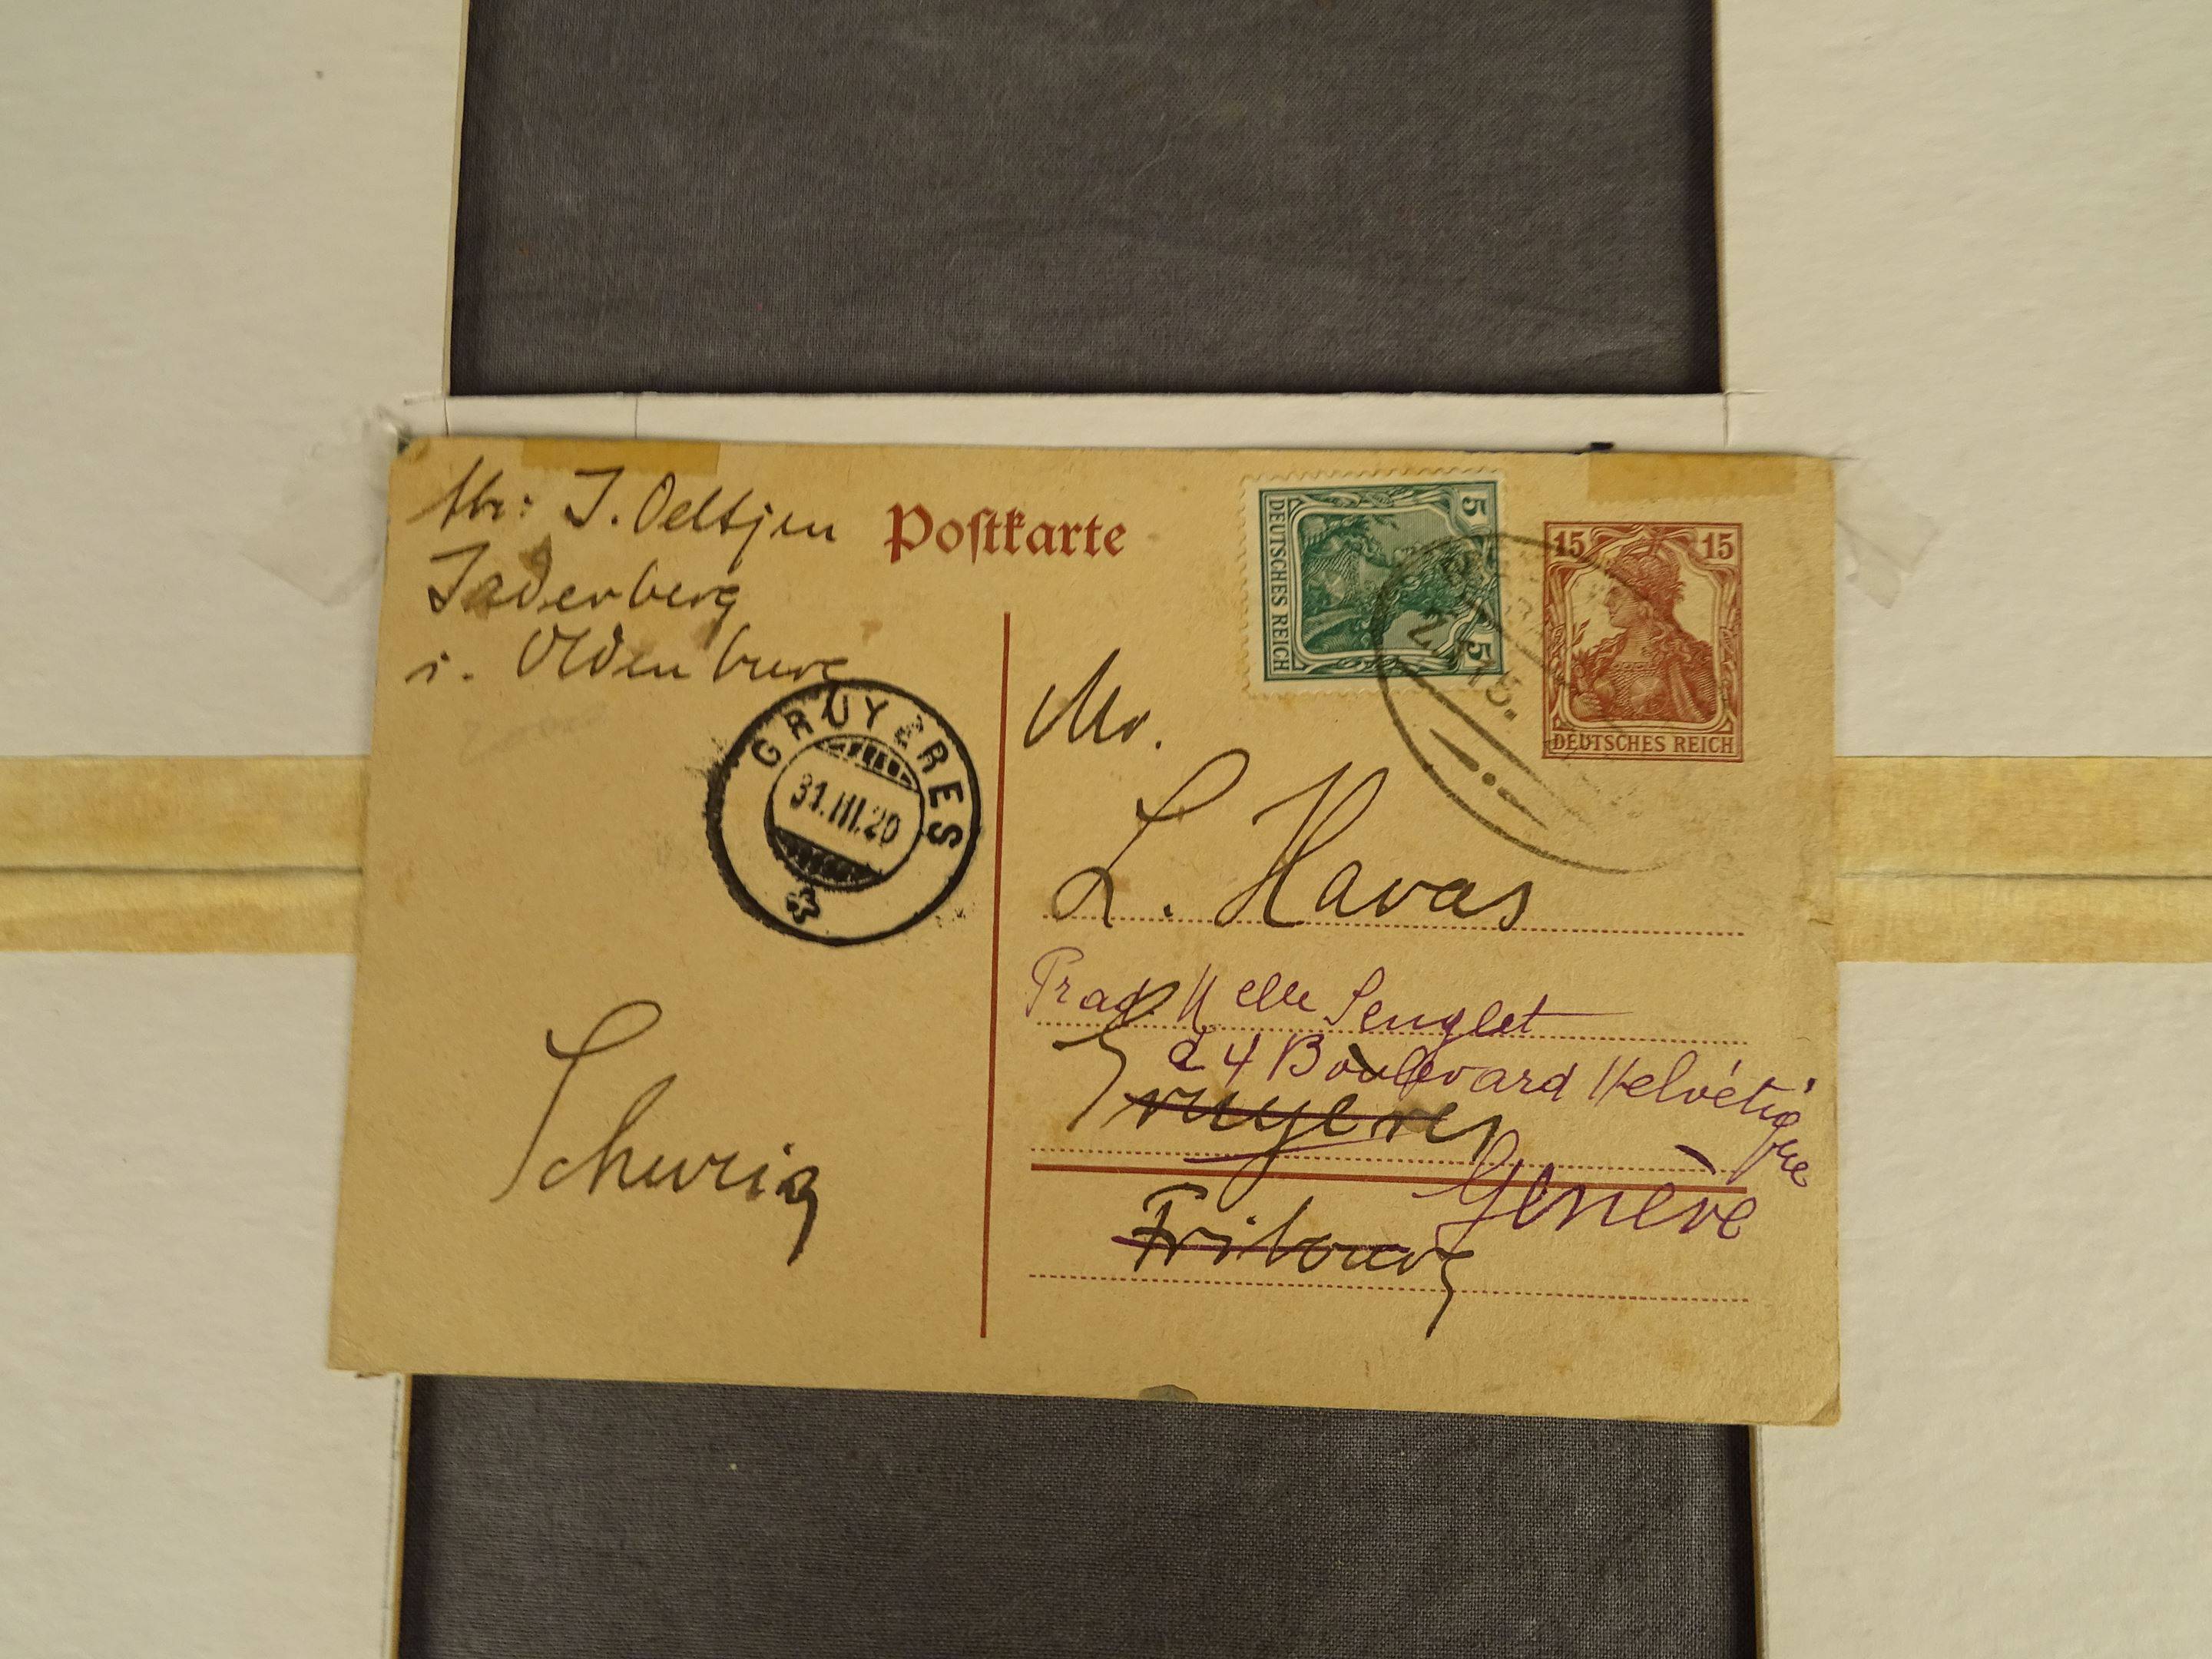 Abs: J. Oeltjen
Jaderberg
i. Oldenburg
Postkarte
5 5
DEUTSCHES REICH
15 15
DEUTSCHES REICH
GRUYÈRES
31.III.20
Mr.
L. Havas
Melle Senglet
24 Boulevard Helvétique
Gruyères
Genève
Fribourg
Schweiz